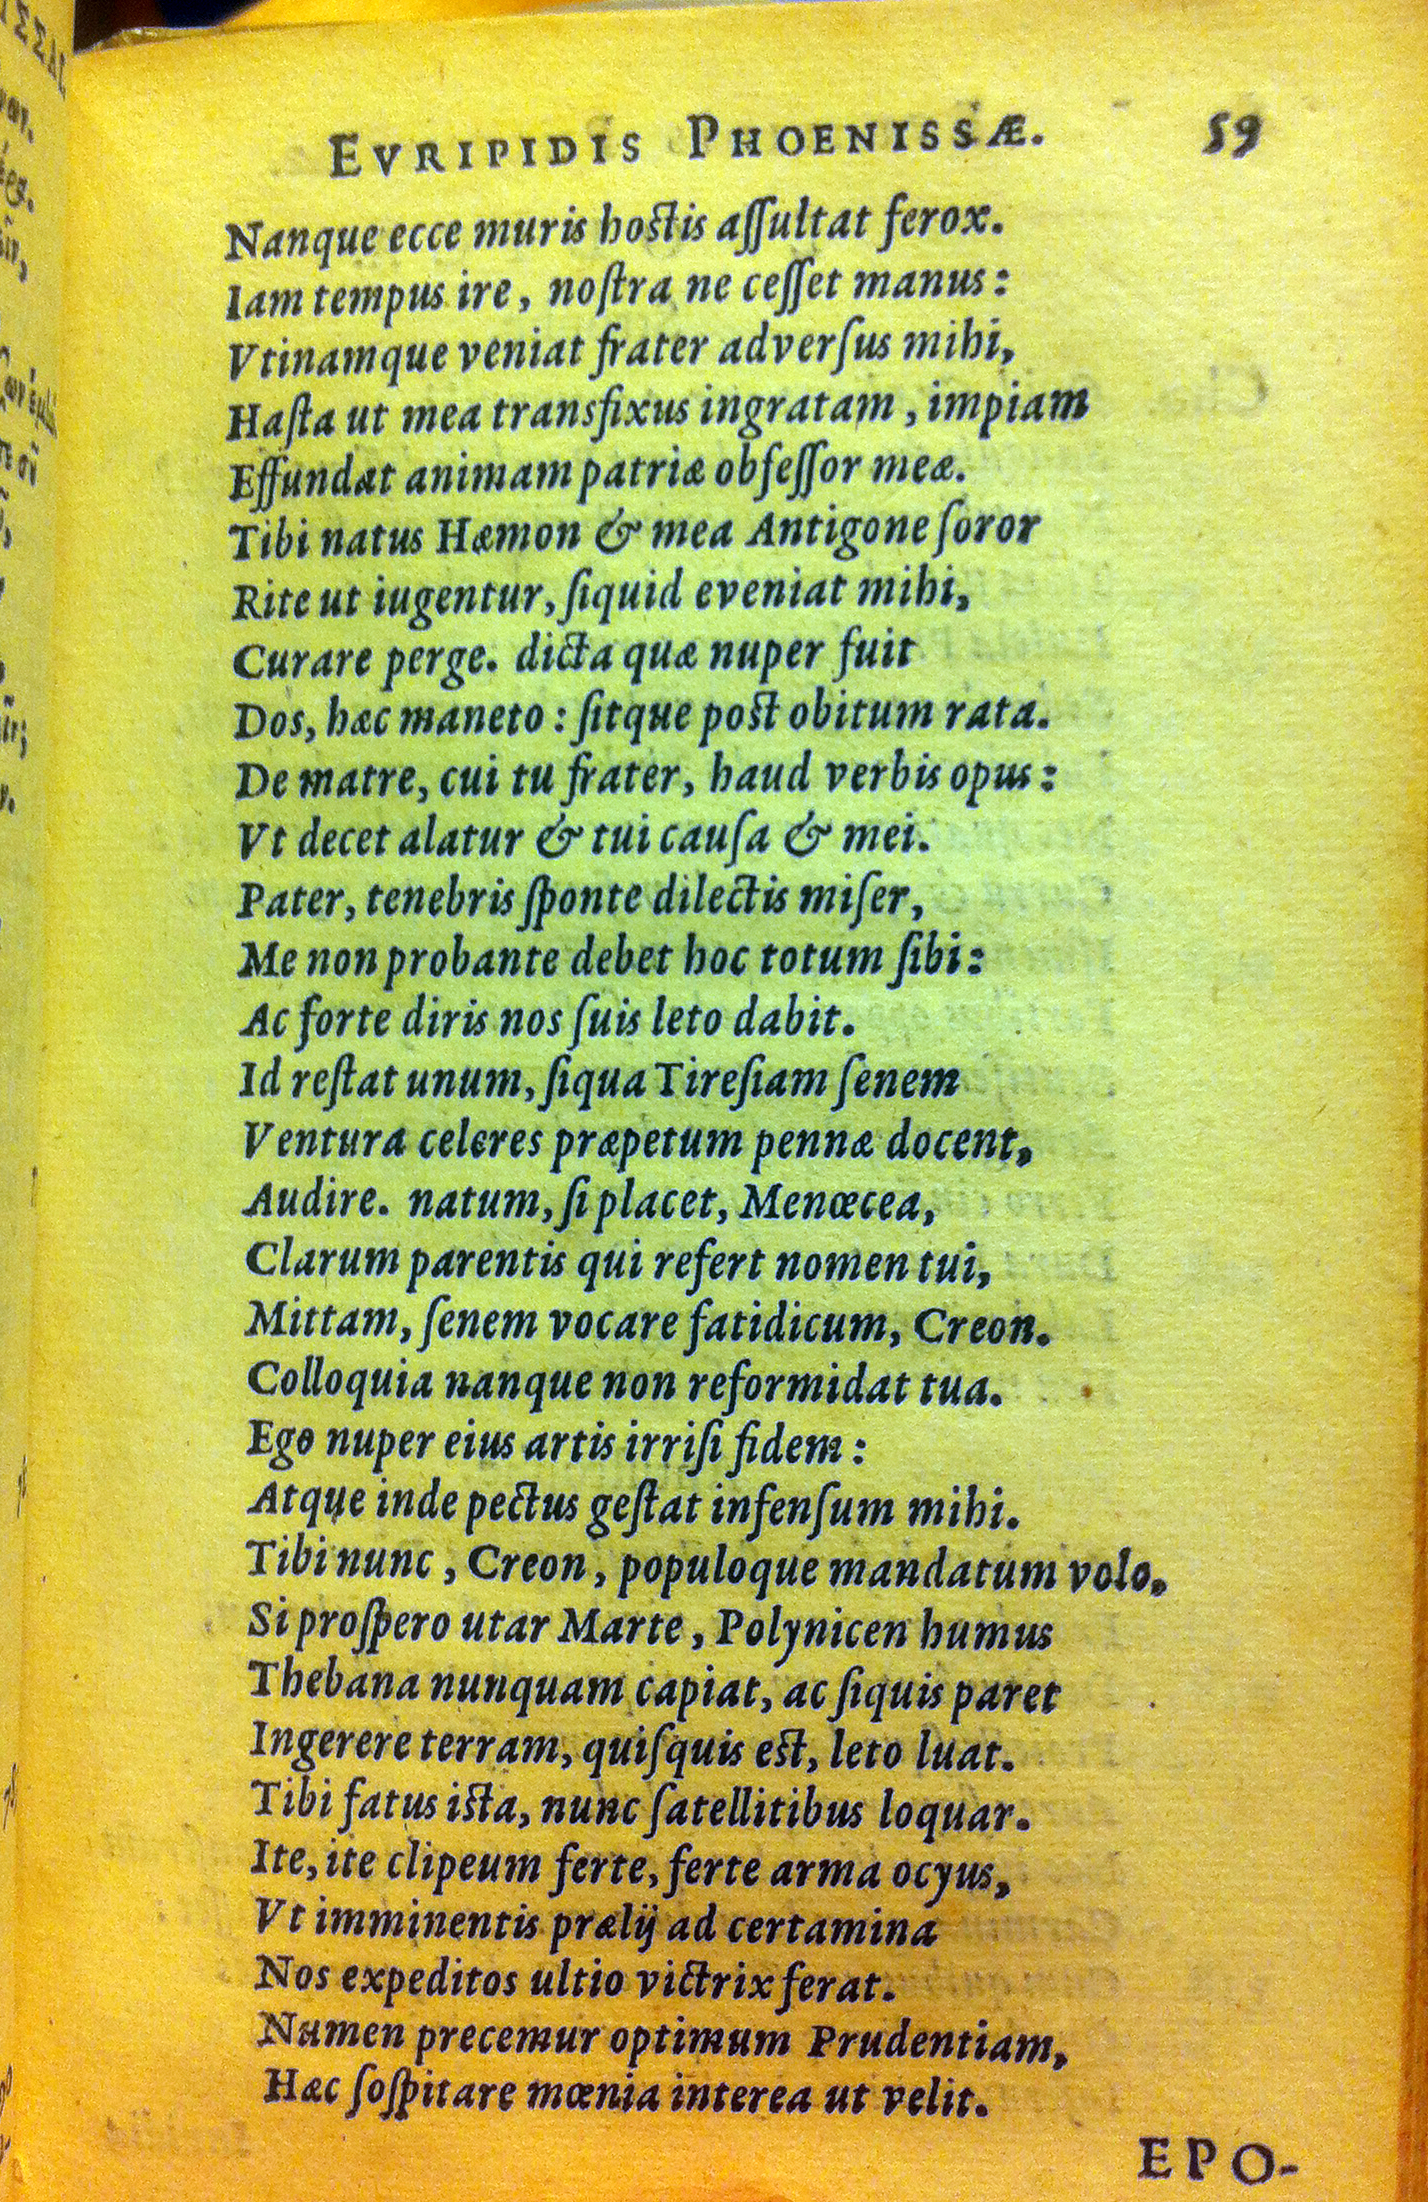 EVRIPIDIS PHOENISSÆ. 59
Nanque ecce muris hostis aſſultat ferox.
Iam tempus ire, noſtra ne ceſſet manus:
Vtinamque veniat frater adverſus mihi,
Haſta ut mea transfixus ingratam, impiam
Effundat animam patriæ obſeſſor meæ.
Tibi natus Hæmon & mea Antigone ſoror
Rite ut iugentur, ſiquid eveniat mihi,
Curare perge. dicta quæ nuper fuit
Dos, hæc maneto: ſitque post obitum rata.
De matre, cui tu frater, haud verbis opus:
Vt decet alatur & tui cauſa & mei.
Pater, tenebris ſponte dilectis miſer,
Me non probante debet hoc totum ſibi:
Ac forte diris nos ſuis leto dabit.
Id reſtat unum, ſiqua Tireſiam ſenem
Ventura celeres præpetum pennæ docent,
Audire. natum, ſi placet, Menœcea,
Clarum parentis qui refert nomen tui,
Mittam, ſenem vocare fatidicum, Creon.
Colloquia nanque non reformidat tua.
Ego nuper eius artis irriſi fidem:
Atque inde pectus geſtat infenſum mihi.
Tibi nunc, Creon, populoque mandatum volo.
Si proſpero utar Marte, Polynicen humus
Thebana nunquam capiat, ac ſiquis paret
Ingerere terram, quiſquis est, leto luat.
Tibi fatus ista, nunc ſatellitibus loquar.
Ite, ite clipeum ferte, ferte arma ocyus,
Vt imminentis prælij ad certamina
Nos expeditos ultio victrix ferat.
Numen precemur optimum Prudentiam,
Hæc ſoſpitare mœnia interea ut velit.
EPO-